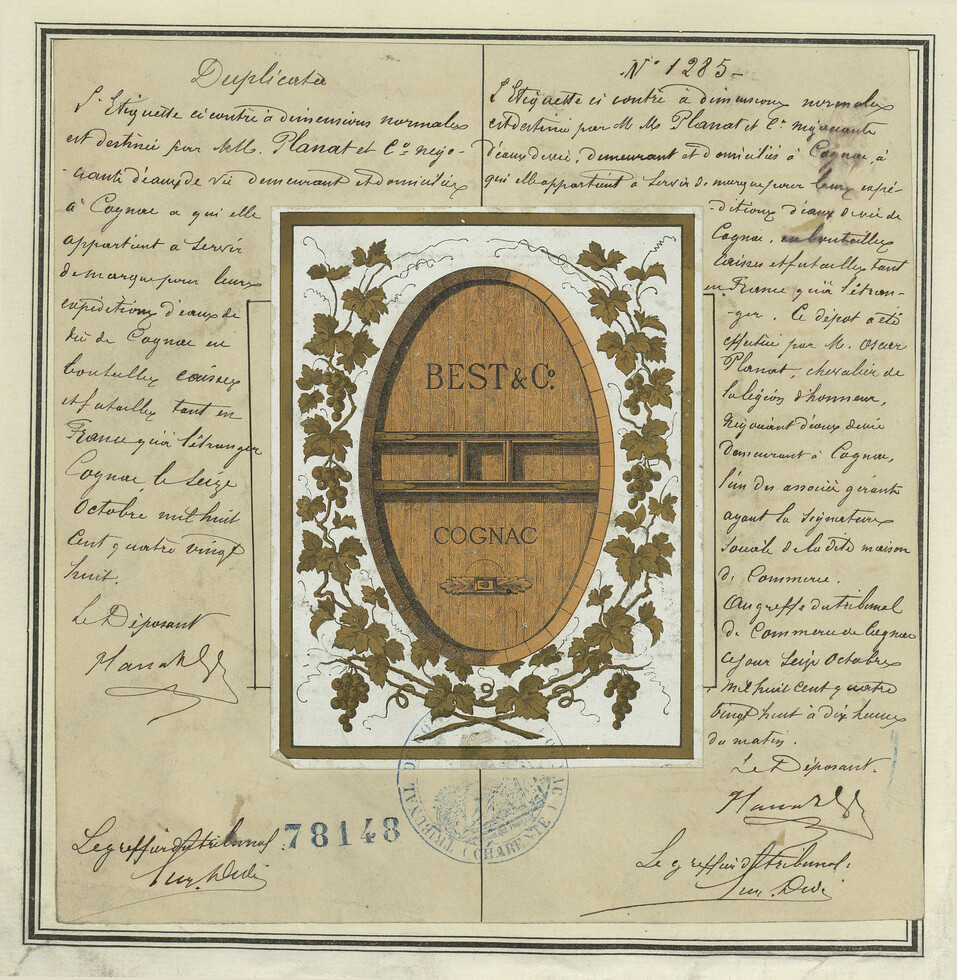 Duplicata
L'Etiquette ci contre à dimensions normales
est destinée par MM. Planat et Cº négo-
-ciants d'eaux de vie demeurant et domiciliés
à Cognac a qui elle
appartient a servir
de marque pour leurs
expéditions d'eaux de
vie de Cognac en
bouteilles caisses
et futailles tant en
France qu'à l'étranger
Cognac le seize
Octobre mil huit
cent quatre vingt
huit.
Le Déposant
Planat
Le greffier du tribunal
78148
Nº 1285-
L'Etiquette ci contre à dimensions normales
est destinée par M Ms Planat et Cº négociants
d'eaux de vie, demeurant et domiciliés à Cognac, à
qui elle appartient a servir de marque pour leurs expé-
-ditions d'eaux de vie de
Cognac, en bouteilles
caisses et futailles tant
en France qu'à l'étran-
-ger. Ce dépot a été
effectué par M. Oscar
Planat, chevalier de
la légion d'honneur,
Négociant d'eaux de vie
demeurant à Cognac,
l'un des associés gérants
ayant la signature
sociale de la dite maison
de Commerce.
Au greffe du tribunal
de Commerce de Cognac
ce jour seize Octobre
mil huit cent quatre
vingt huit à dix heures
du matin.
Le Déposant.
Planat
Le greffier du tribunal:
BEST & Cº.
COGNAC
TRIBUNAL DE COGNAC (CHARENTE)